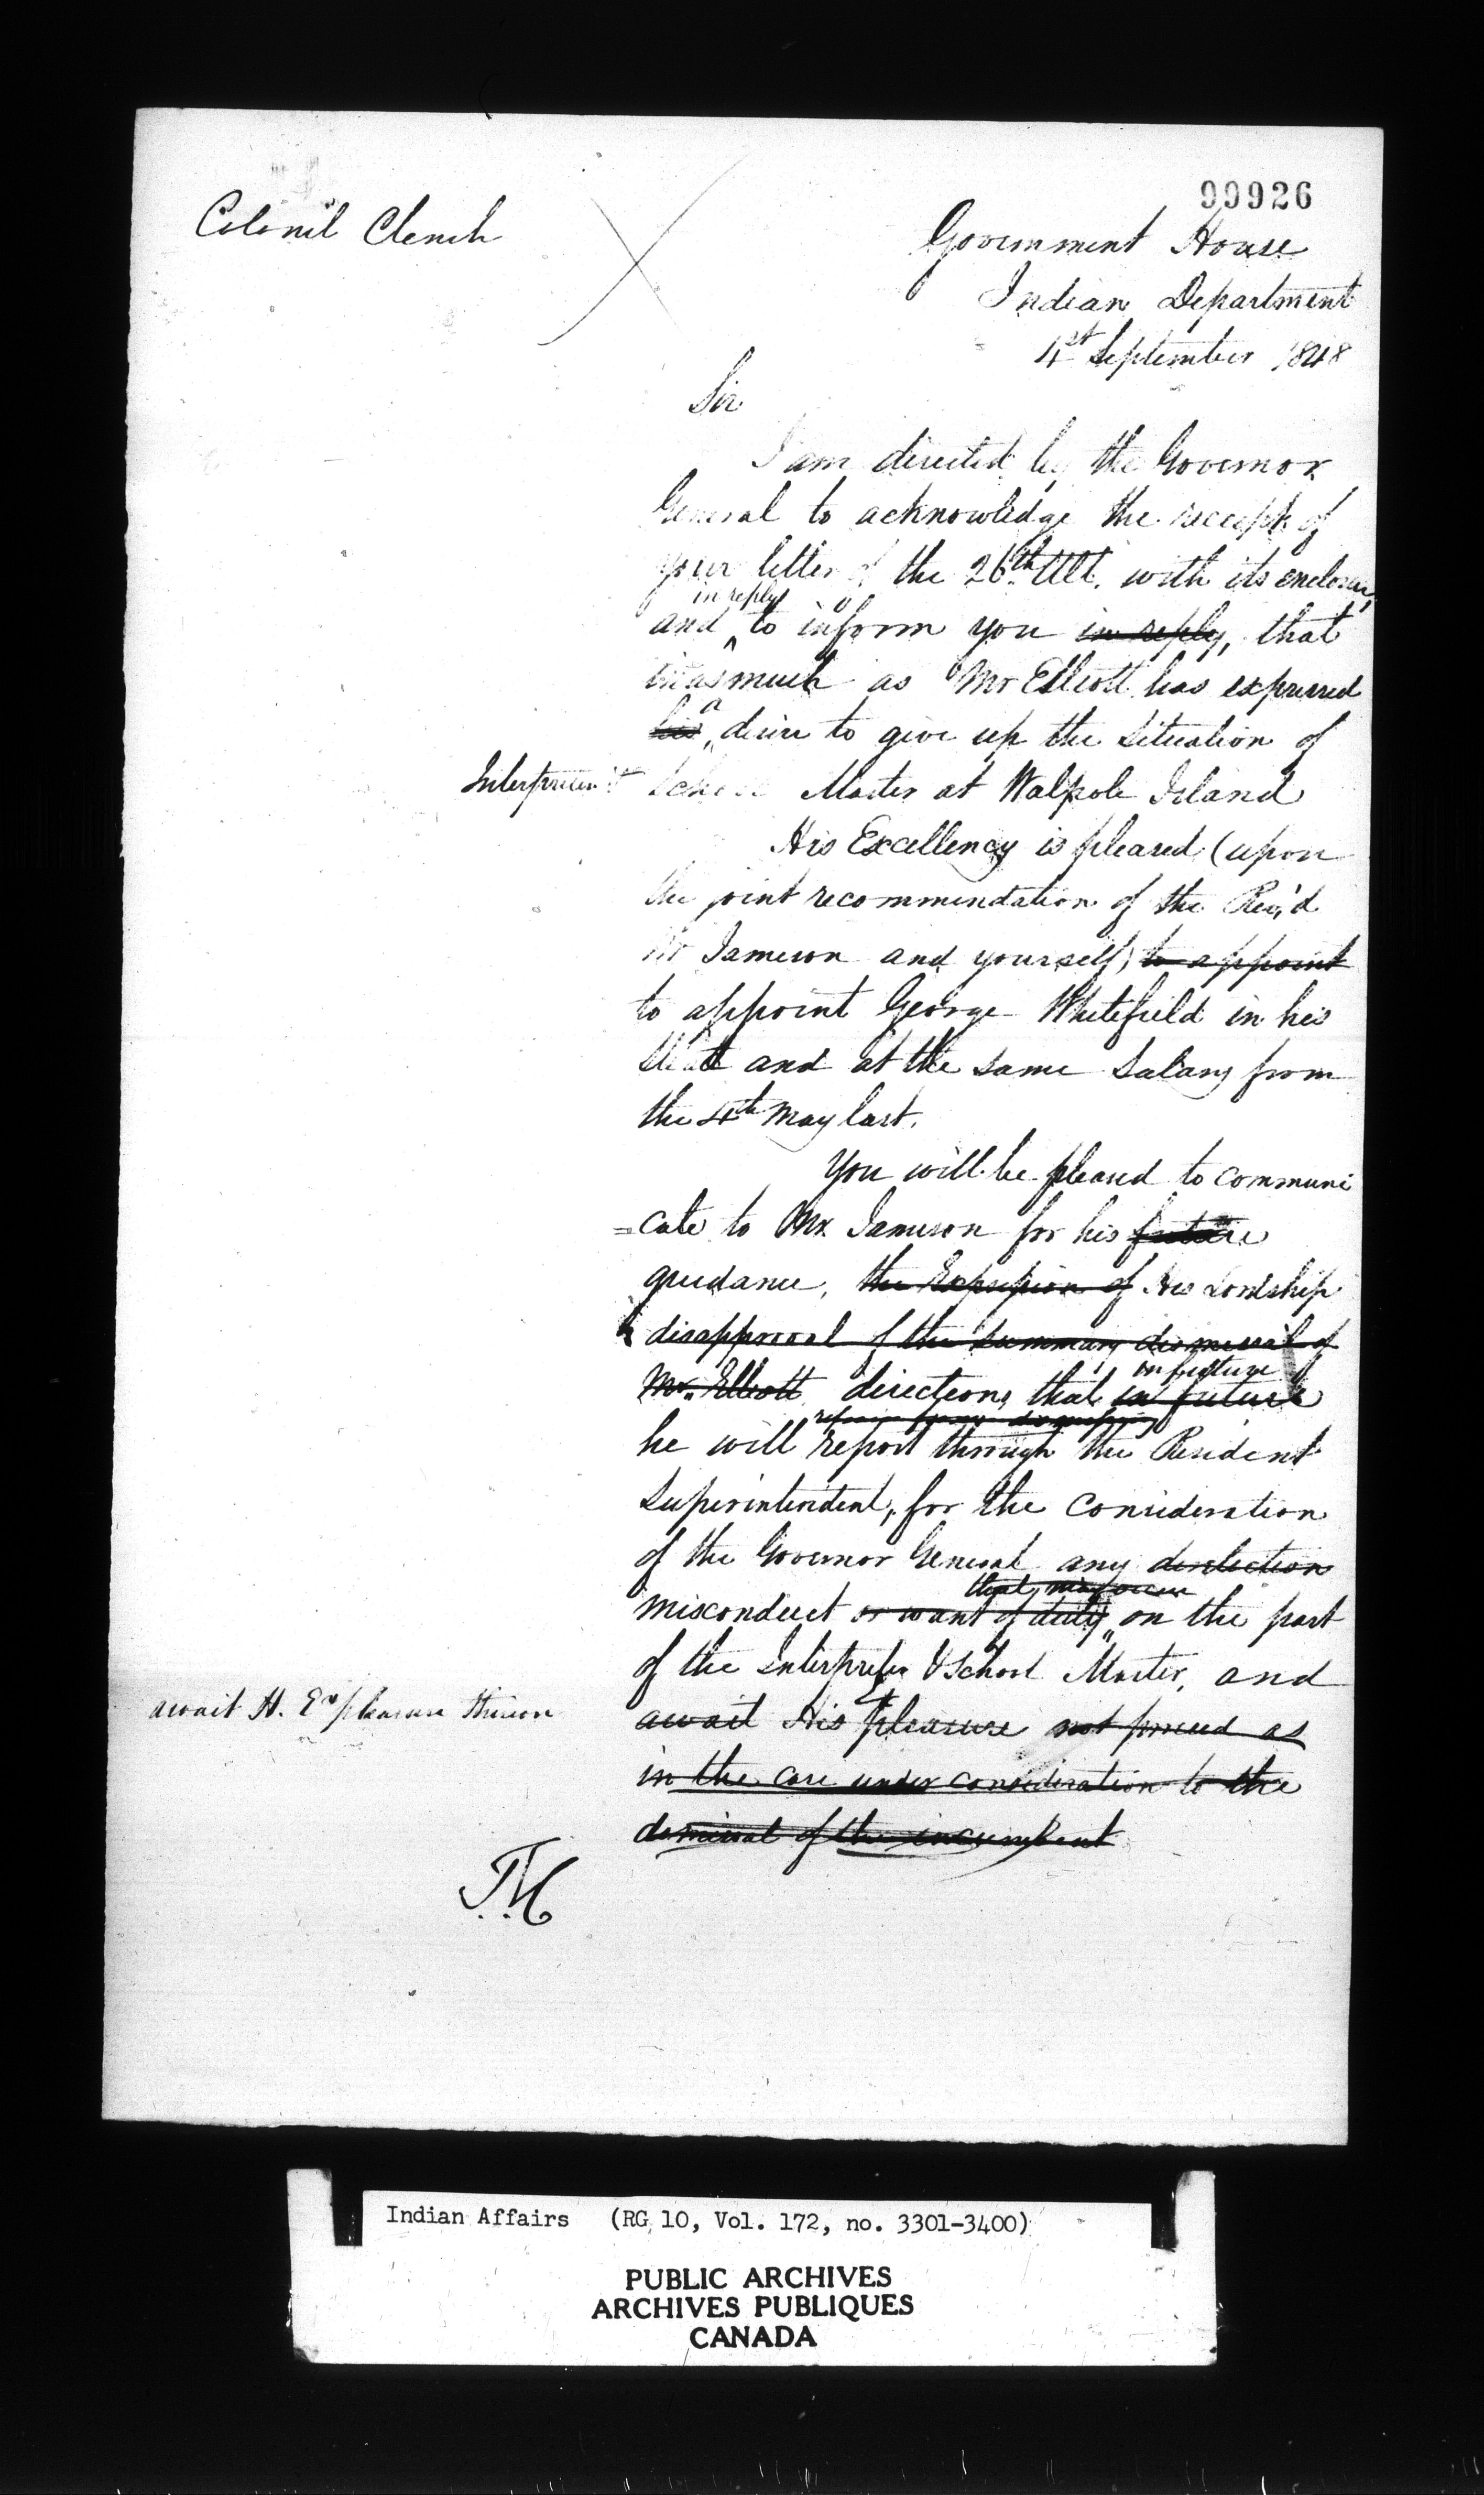 99926
Colonel Clench
Government House
Indian Department
4st September 1848
Sir
I am directed by the Governor
General to acknowledge the receipt of
your letter of the 26th Ult. with its enclosure,
in reply
and to inform you in reply, that
inasmuch as Mr Elliott has expressed
a
his desire to give up the situation of
Interpreter &
School Master at Walpole Island
His Excellency is pleased (upon
the joint recommendation of the Rev'd
Mr Jameson and yourself) to appoint
to appoint George Whitefield in his
stead and at the same Salary from
the 4th May last.
You will be pleased to communi
=cate to Mr Jameson for his future
guidance, the expression of His Lordship
disapproval of the summary dismissal of
in future
Mr. Elliott directions that in future
refrain from dismissing
he will report through the Resident
Superintendent, for the consideration
of the Governor General any dereliction
that may occur
misconduct or want of duty on the part
of the Interpreter & School Master, and
await H. Ex pleasure thereon
await His pleasure not proceed as
in the case under consideration to the
dismissal of the incumbent
Indian Affairs (RG 10, Vol. 172, no. 3301-3400)
PUBLIC ARCHIVES
ARCHIVES PUBLIQUES
CANADA